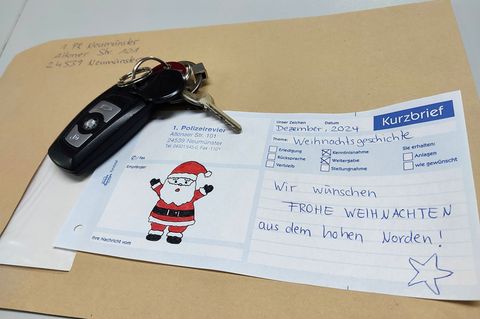 1. PR Neumünster
Altonaer Str. 101
24539 Neumünster
Kurzbrief
1. Polizeirevier
Altonaer Str. 101
24539 Neumünster
Unser Zeichen
Datum
Dezember, 2024
Thema:
Weihnachtsgeschichte
Erledigung
Kenntnisnahme
Sie erhalten:
Rücksprache
Weitergabe
Anlagen
Verbleib
Stellungnahme
wie gewünscht
Fax
Empfänger
Wir wünschen
FROHE WEIHNACHTEN
aus dem hohen Norden!
Ihre Nachricht vom